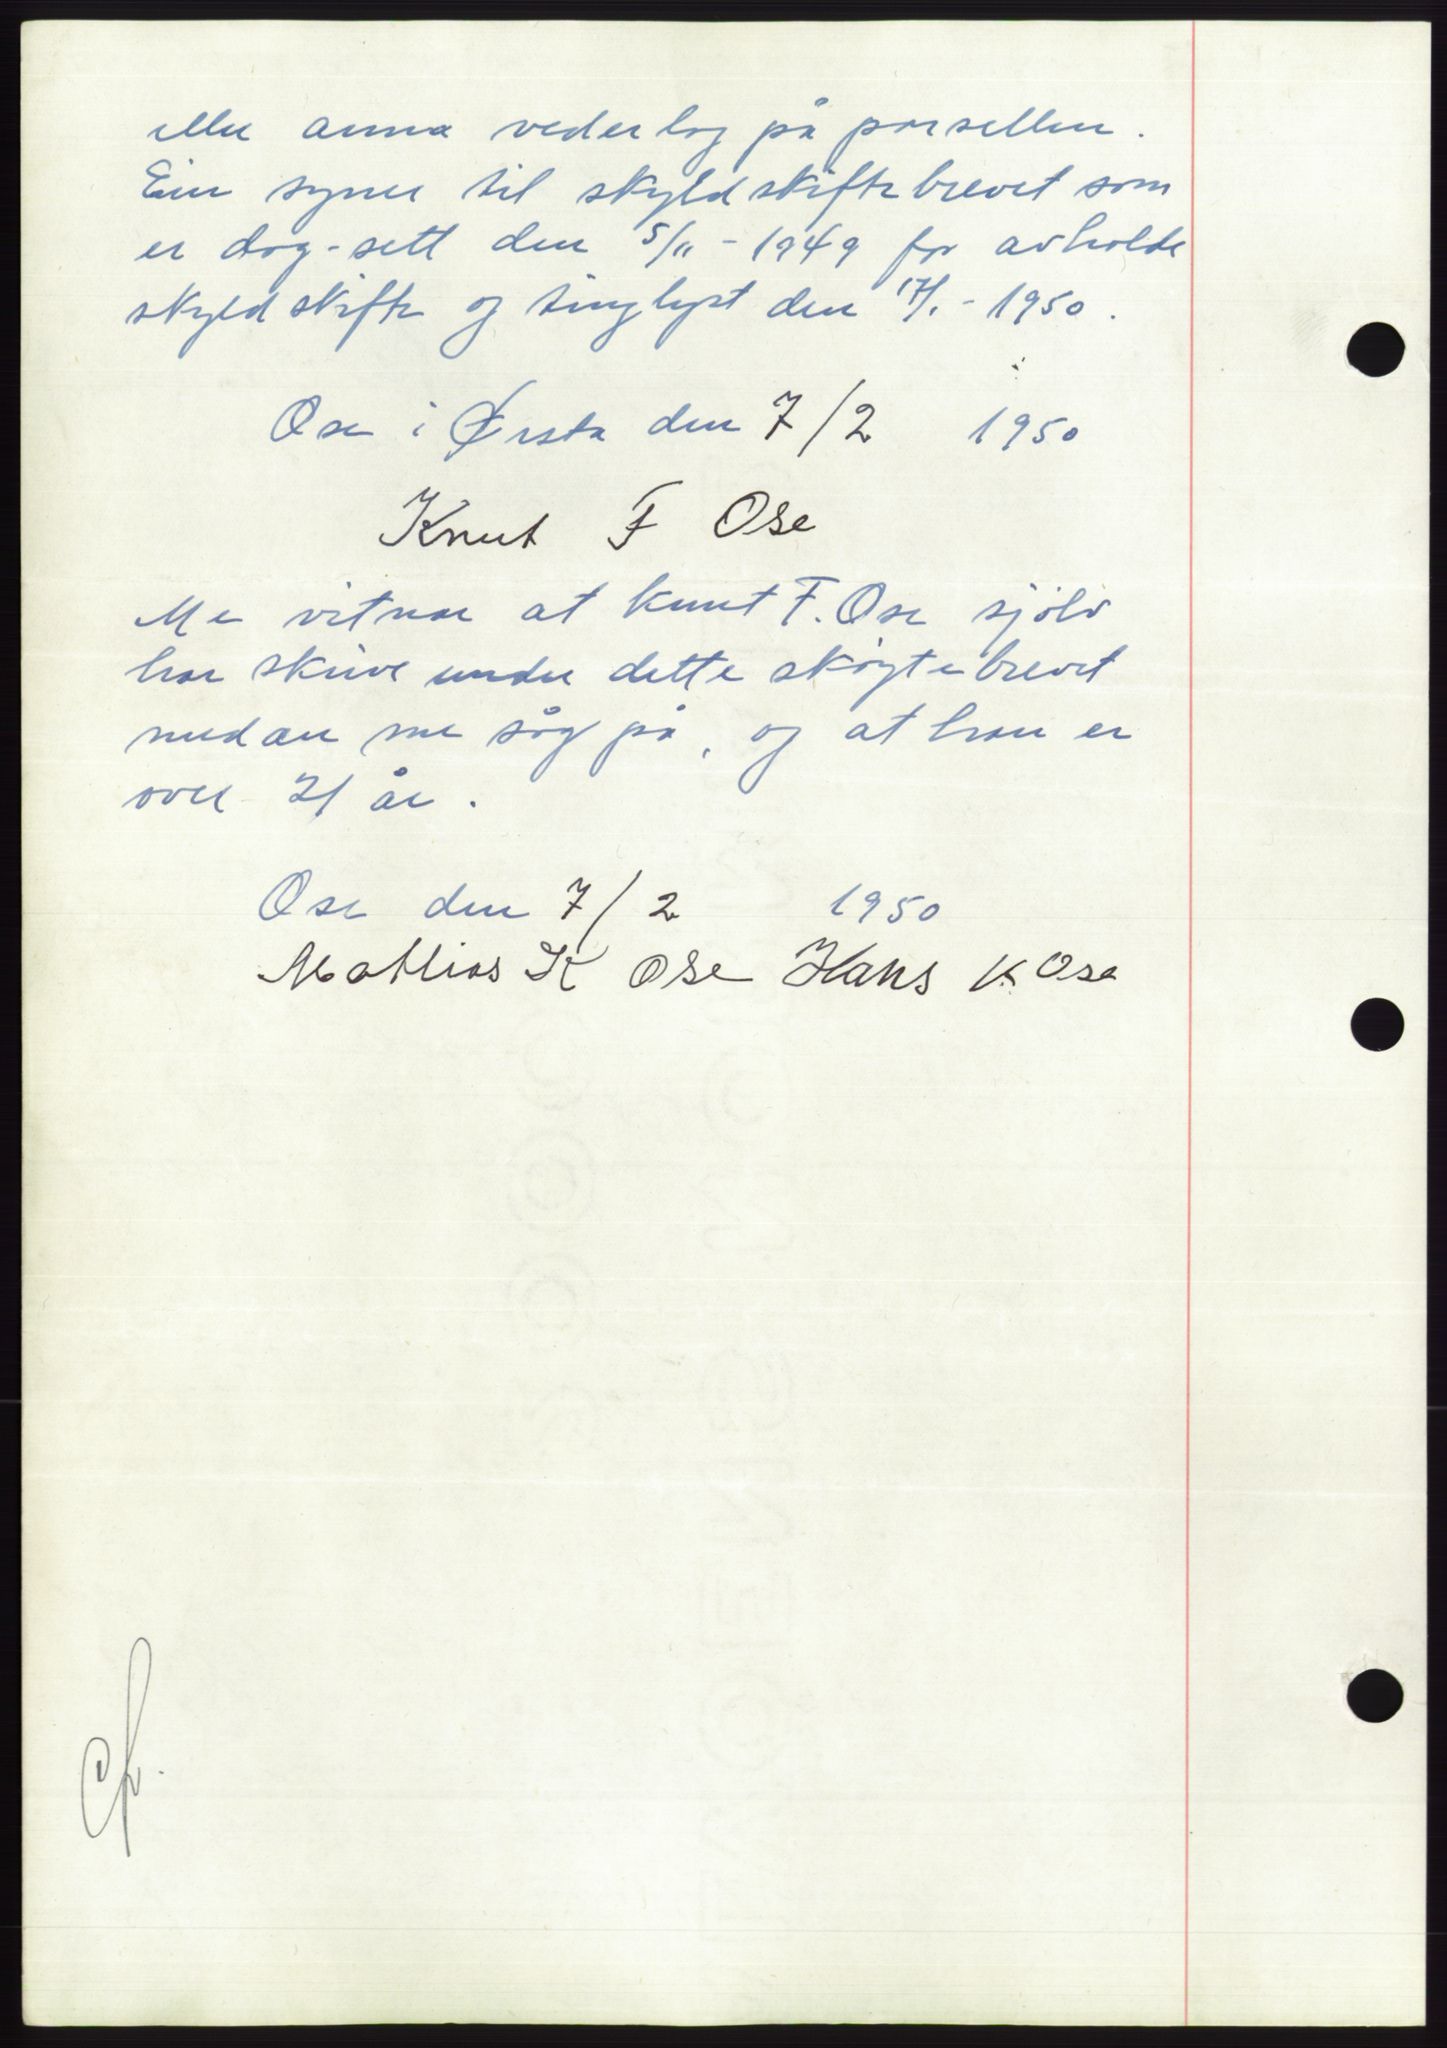 eller anna vederlag på parsellen.
Ein syner til skyldskiftebrevet som
er dag-sett den 5/11 - 1949 for avholde
skyldskifte og tinglyst den 17/1 - 1950.
Ose i Ørsta den 7/2 1950
Knut F Ose
Me vitnar at Knut F. Ose sjölv
har skrive under dette skøyte brevet
medan me såg på, og at han er
over 21 år.
Ose den 7/2 1950
Mathias K Ose Hans K Ose